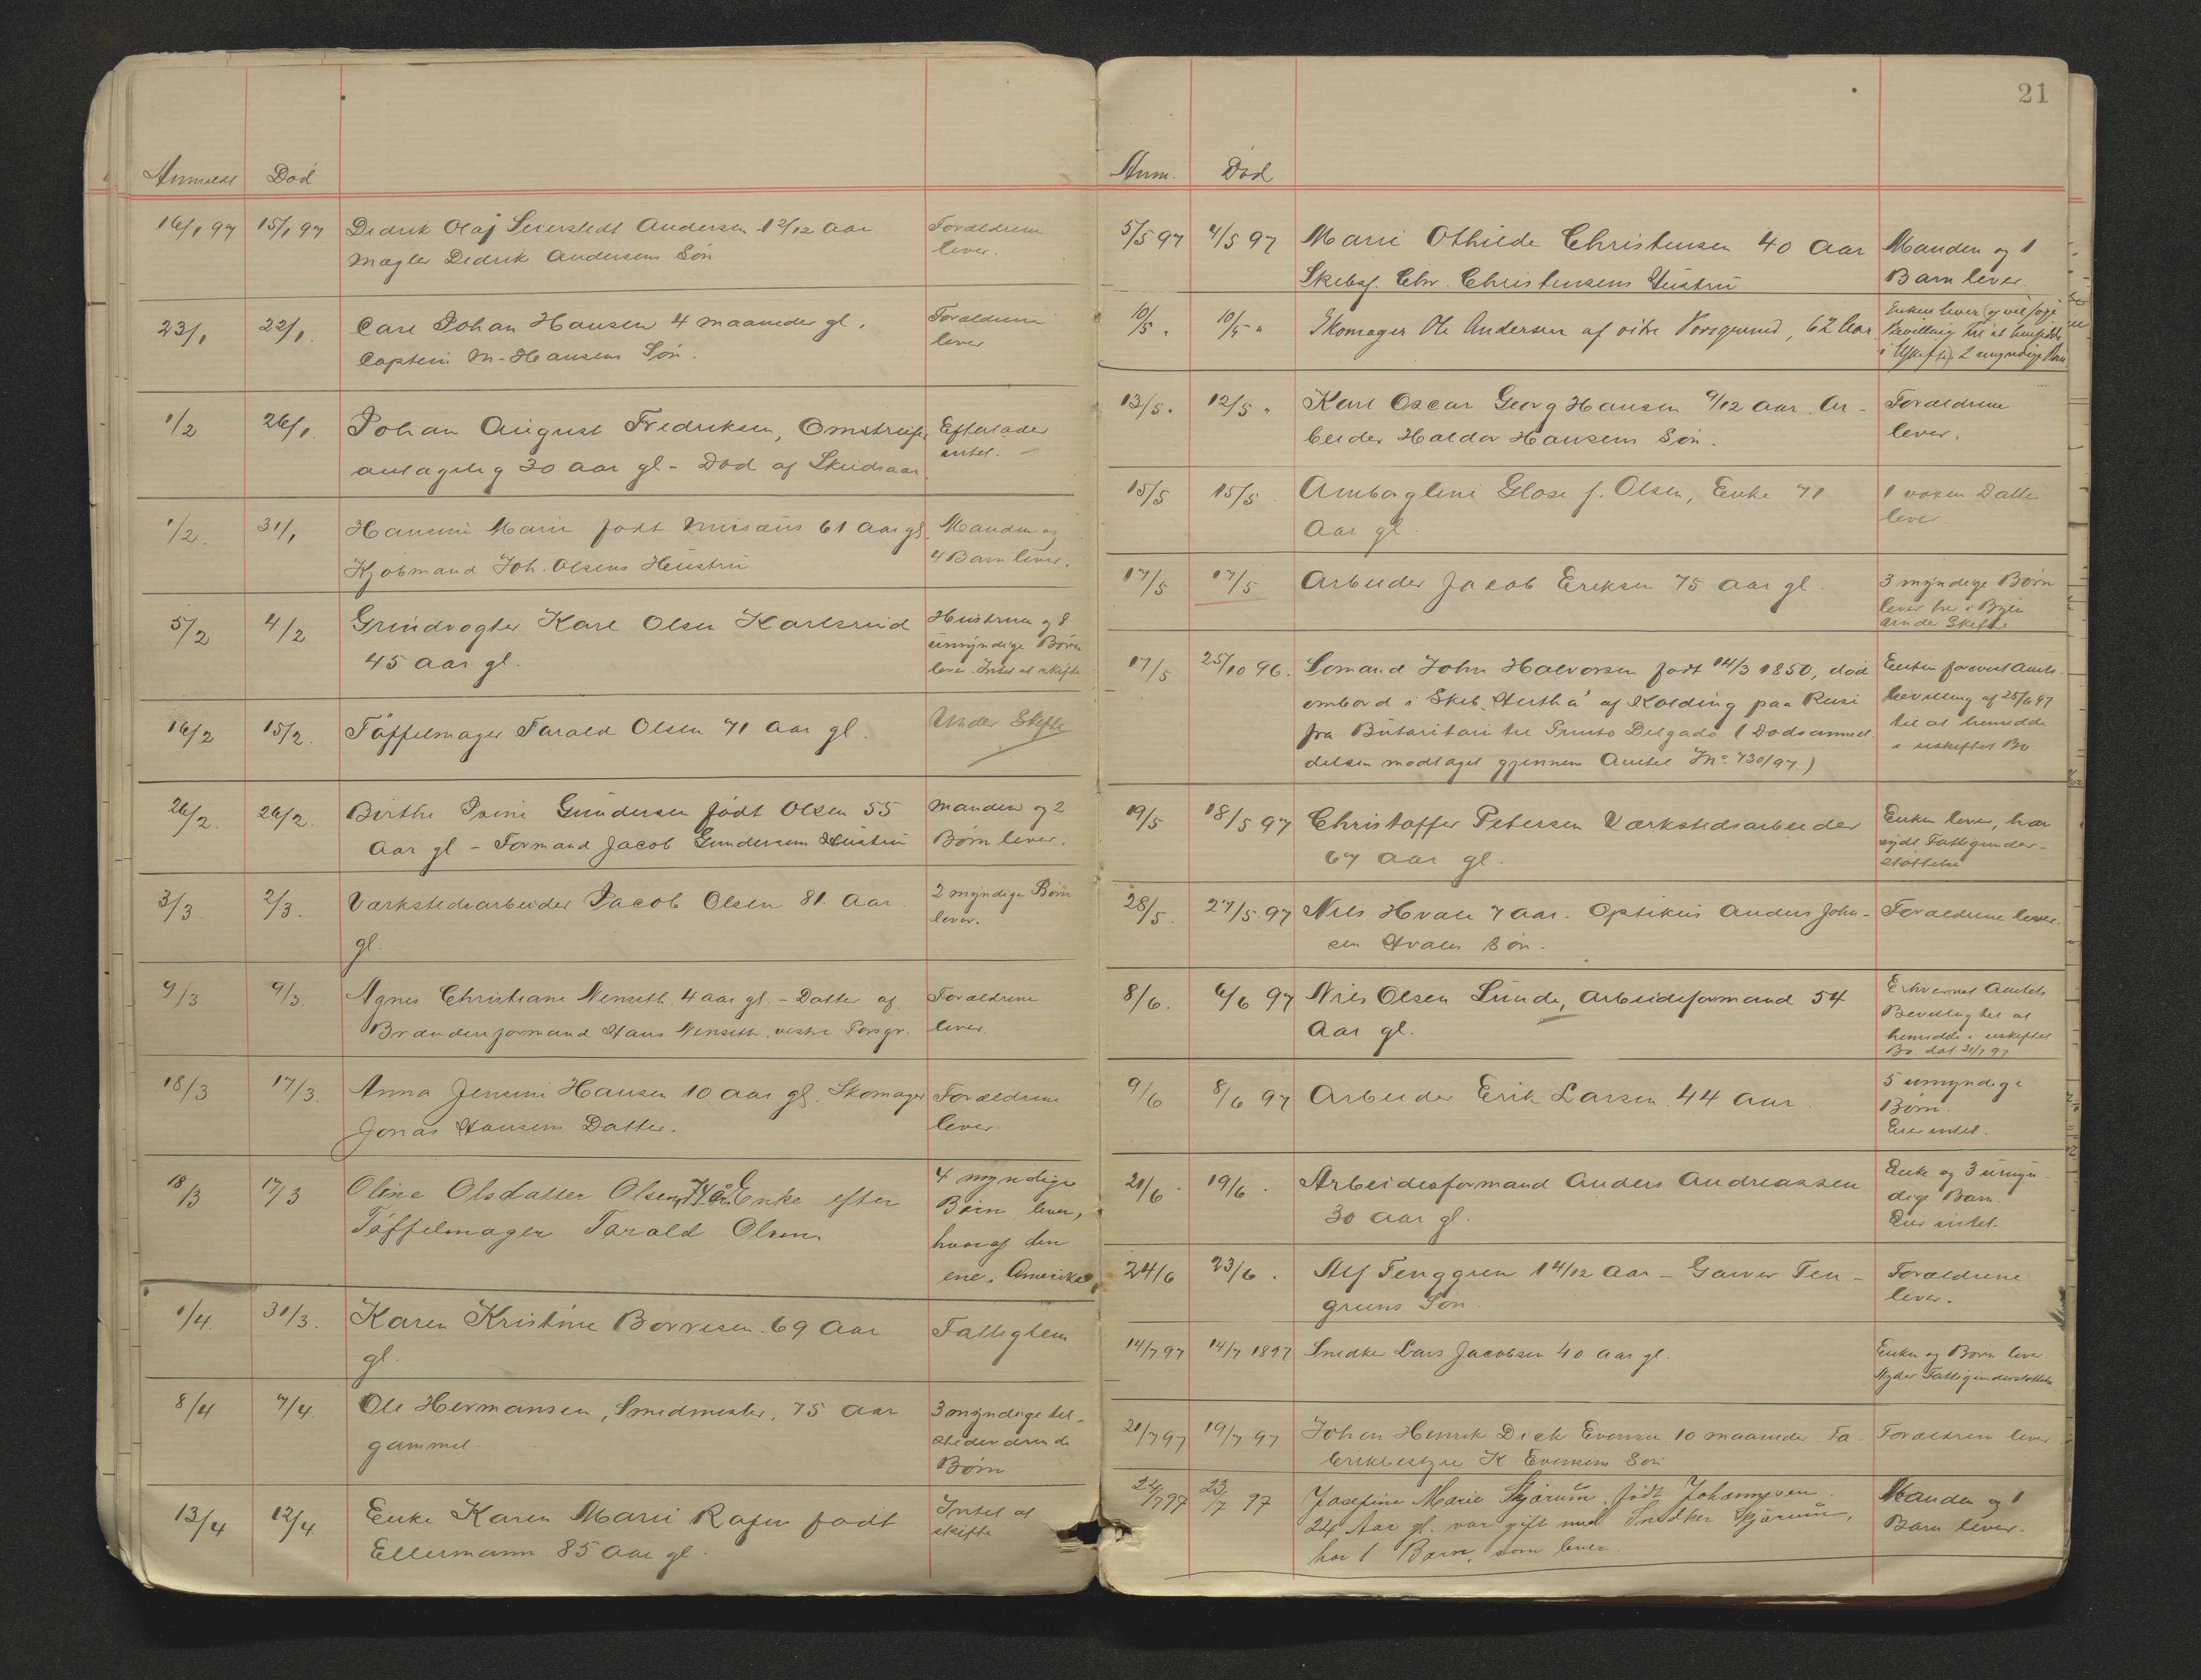 Anmeldt Död
16/1 97 15/1 97 Didrik Olaf Seierstedt Andersen 1 2/12 Aar Forældrene
Mægler Didrik Andersens Sön lever.
23/1 22/1. Carl Johan Hansen 4 maaneder gl. Forældrene
Captein M. Hansens Sön. lever
1/2 26/1. Johan August Fredriksen, Omstreifer Efterlader
antagelig 30 Aar gl - Död af Skudsaar intet.
1/2. 31/1 Hansine Marie födt Musæus 61 Aar gl. Manden og
Kjöbmand Joh. Olsens Hustru 4 Barn lever.
5/2 4/2 Grindvogter Karl Olsen Karlsrud Hustruen og 8
45 Aar gl. umyndige Börn
lever. Intet at skifte
16/2 15/2. Töffelmager Tarald Olsen 71 Aar gl. Under Skifte
26/2. 26/2. Birthe Sine Gundersen födt Olsen 55 Manden og 2
Aar gl - Formand Jacob Gundersens Hustru Börn lever.
3/3. 2/3. Værkstedsarbeider Jacob Olsen 81. Aar 2 myndige Börn
gl. lever.
9/3 9/3. Agnes Christiane Wenseth 4 aar gl. - Datter af Forældrene
Brænderiformand Hans Wenseth. vestre Porsgr. lever.
18/3 17/3. Anna Jensine Hansen 10 Aar gl. Skomager Forældrene
Jonas Hansens Datter. lever.
18/3 17/3 Oline Olsdatter Olsen, 74 Aar Enke efter 4 myndige
Töffelmager Tarald Olsen. Börn lever,
hvoraf den
ene i Amerika
1/4. 31/3. Karen Kristine Borresen. 69 Aar Fattiglem
gl.
8/4 7/4. Ole Hermansen, Smedmester, 75 Aar 3 myndige til-
gammel. stedeværende
Börn
13/4 12/4. Enke Karen Marie Rafen födt Intet at
Ellermann 85 Aar gl. skifte
21
Anm. Död
5/5 97 4/5 97 Marie Othilde Christensen 40 Aar Manden og 1
Skibsf. Chr. Christensens Hustru Barn lever.
10/5. 10/5 " Skomager Ole Andersen af vestre Porsgrund, 62 Aar Enken lever (og vil söge
Bevilling til at hensidde
i Uskifte), 2 myndige Börn.
13/5. 12/5 " Karl Oscar Georg Hansen 9/12 aar. Ar- Forældrene
beider Haldor Hansens Sön. lever.
15/5 15/5. Glase f. Olsen, Enke 71 1 voxen Datter
Aar gl. lever
17/5 17/5 Arbeider Jacob Eriksen 75 Aar gl. 3 myndige Börn
lever her i Byen
under Skifte
17/5 25/10 96. Sömand John Halvorsen födt 14/3 1850, död Enken forevist Amts-
ombord i Skib "Hertha" af Kolding paa Reise bevilling af 25/6 97
fra Butaritari til Punto Delgada. (Dödsanmel- til at hensidde
delsen modtaget gjennem Amtet No. 730/97.) i uskiftet Bo
19/5 18/5 97 Christoffer Petersen Værkstedsarbeider Enken lever, har
67 Aar gl. nydt Fattigunder-
stöttelse
28/5. 27/5 97 Nils Hvale 7 Aar. Optikus Anders John- Forældrene lever.
sen Hvales Sön.
8/6. 6/6 97 Nils Olsen Lunde, Arbeidsformand 54 Erhvervet Amtets
Aar gl. Bevilling til at
hensidde i uskiftet
Bo. dat 31/7 97
9/6 8/6 97 Arbeider Erik Larsen. 44 aar. 5 umyndige
Börn.
Eier intet.
21/6. 19/6. Arbeidsformand Anders Andreassen Enke og 3 umyn-
30 aar gl. dige Barn.
Eier intet.
24/6 23/6. Alf Tenggren 1 4/12 Aar - Garver Ten- Forældrene
grens Sön. lever.
14/7 97 14/7 1897 Snedker Lars Jacobsen 40 Aar gl. Enke og Börn lever
Nyder Fattigunderstöttelse
21/7 97 19/7 97 Johan Henrik Dick Evensen 10 maaneder. Fa- Forældrene lever
brikbestyrer K. Evensens Sön
24/7 97 23/7 97 Josefine Marie Skjærum, födt Johannesen. Manden og 1
24 Aar gl. var gift med Snedker Skjærum, Barn lever.
har 1 Barn, som lever.